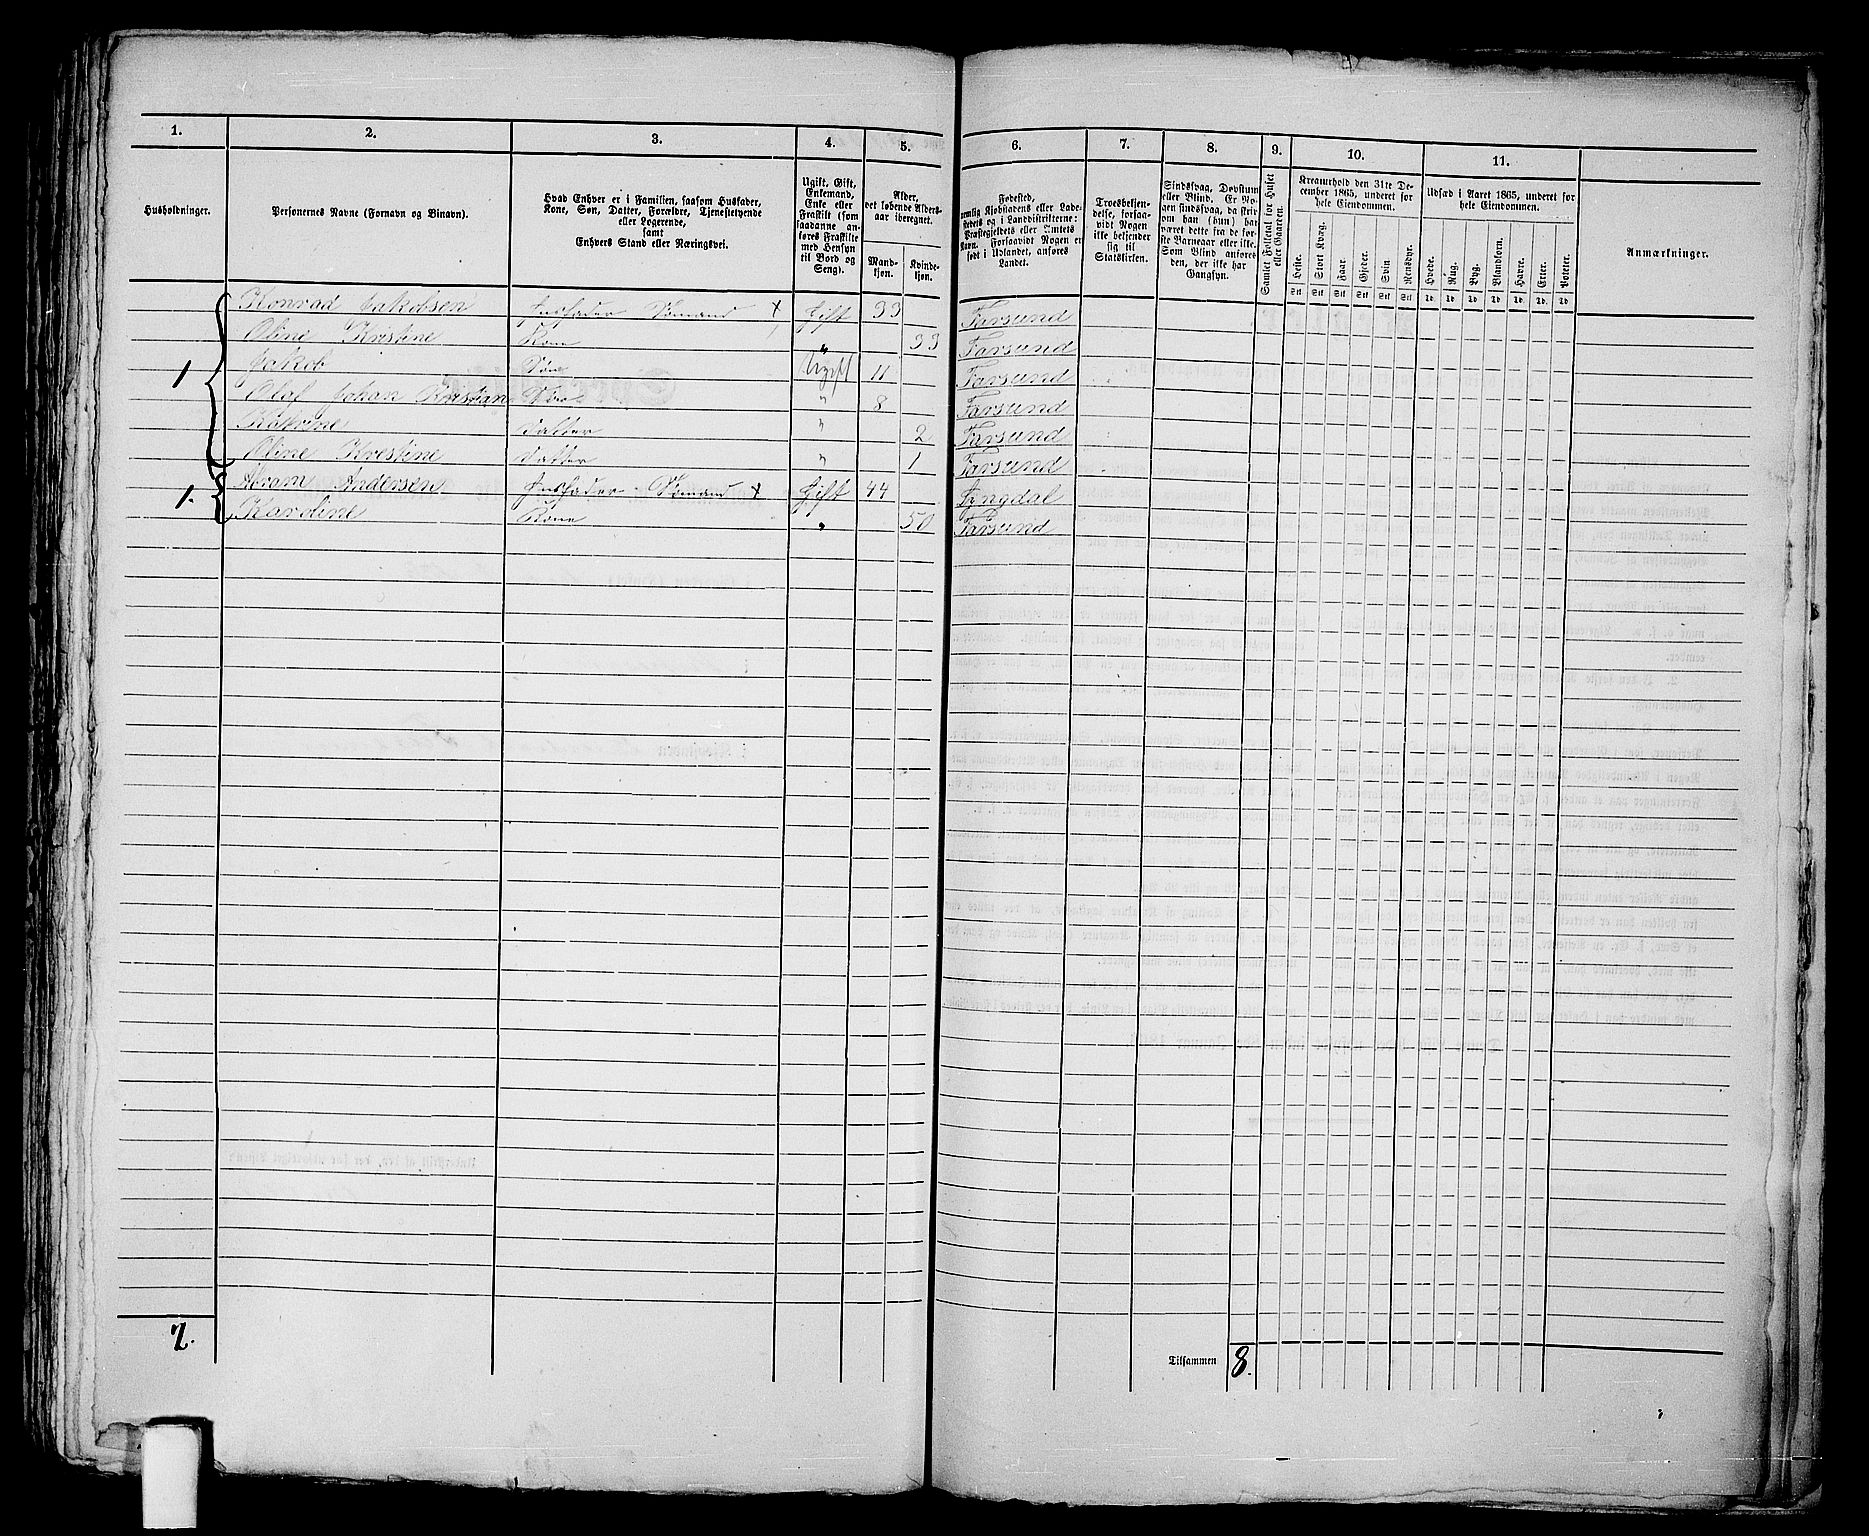 1. 2. 3. 4. 5. 6. 7. 8. 9. 10. 11.
Husholdninger.
Personernes Navne (Fornavn og Binavn).
Hvad Enhver er i Familien, saasom Husfader,
Kone, Søn, Datter, Forældre, Tjenestetyende
eller Logerende,
samt
Enhvers Stand eller Næringsvei.
Ugift, Gift,
Enkemand,
Enke eller
Fraskilt (som
saadanne an-
føres Fraskilte
med Hensyn
til Bord og
Seng).
Alder,
det løbende Alders-
aar iberegnet.
Mand-
kjøn.
Kvinde-
kjøn.
Fødested,
nemlig Kjøbstadens eller Lade-
stedets og i Landdistrikterne:
Præstegjeldets eller Amtets
Navn. Forsaavidt Nogen er
født i Udlandet, anføres
Landet.
Troesbekjen-
delse, forsaa-
vidt Nogen
ikke bekjender
sig til
Statskirken.
Sindssvag, Døvstum
eller Blind. Er No-
gen sindssvag, da skriv
om han (hun) har
været dette fra de før-
ste Barneaar eller ikke.
Som Blind anføres
den, der ikke har
Gangsyn.
Samlet Folketal for Huset
eller Gaarden.
Kreaturhold den 31te De-
cember 1865, underet for
hele Eiendommen.
Heste. Stort Kvæg. Faar. Gjeder. Svin. Rensdyr.
Stk Stk Stk Stk Stk Stk
Udsæd i Aaret 1865, underet for
hele Eiendommen.
Hvede. Rug. Byg. Blandkorn. Havre. Erter. Poteter.
Td. Td. Td. Td. Td. Td. Td.
Anmærkninger.
Konrad Jakobsen Husfader Sømand x Gift 33 Farsund
Oline Kristine Kone " 33 Farsund
1 Jakob Søn Ugift 11 Farsund
Olaf Johan Kristian Søn " 8 Farsund
Katrine Datter " 2 Farsund
Oline Kristine Datter " 1 Farsund
1. Abram Andersen Husfader Sømand x Gift 44 Lyngdal
Karoline Kone " 50 Farsund
2.
Tilsammen 8.